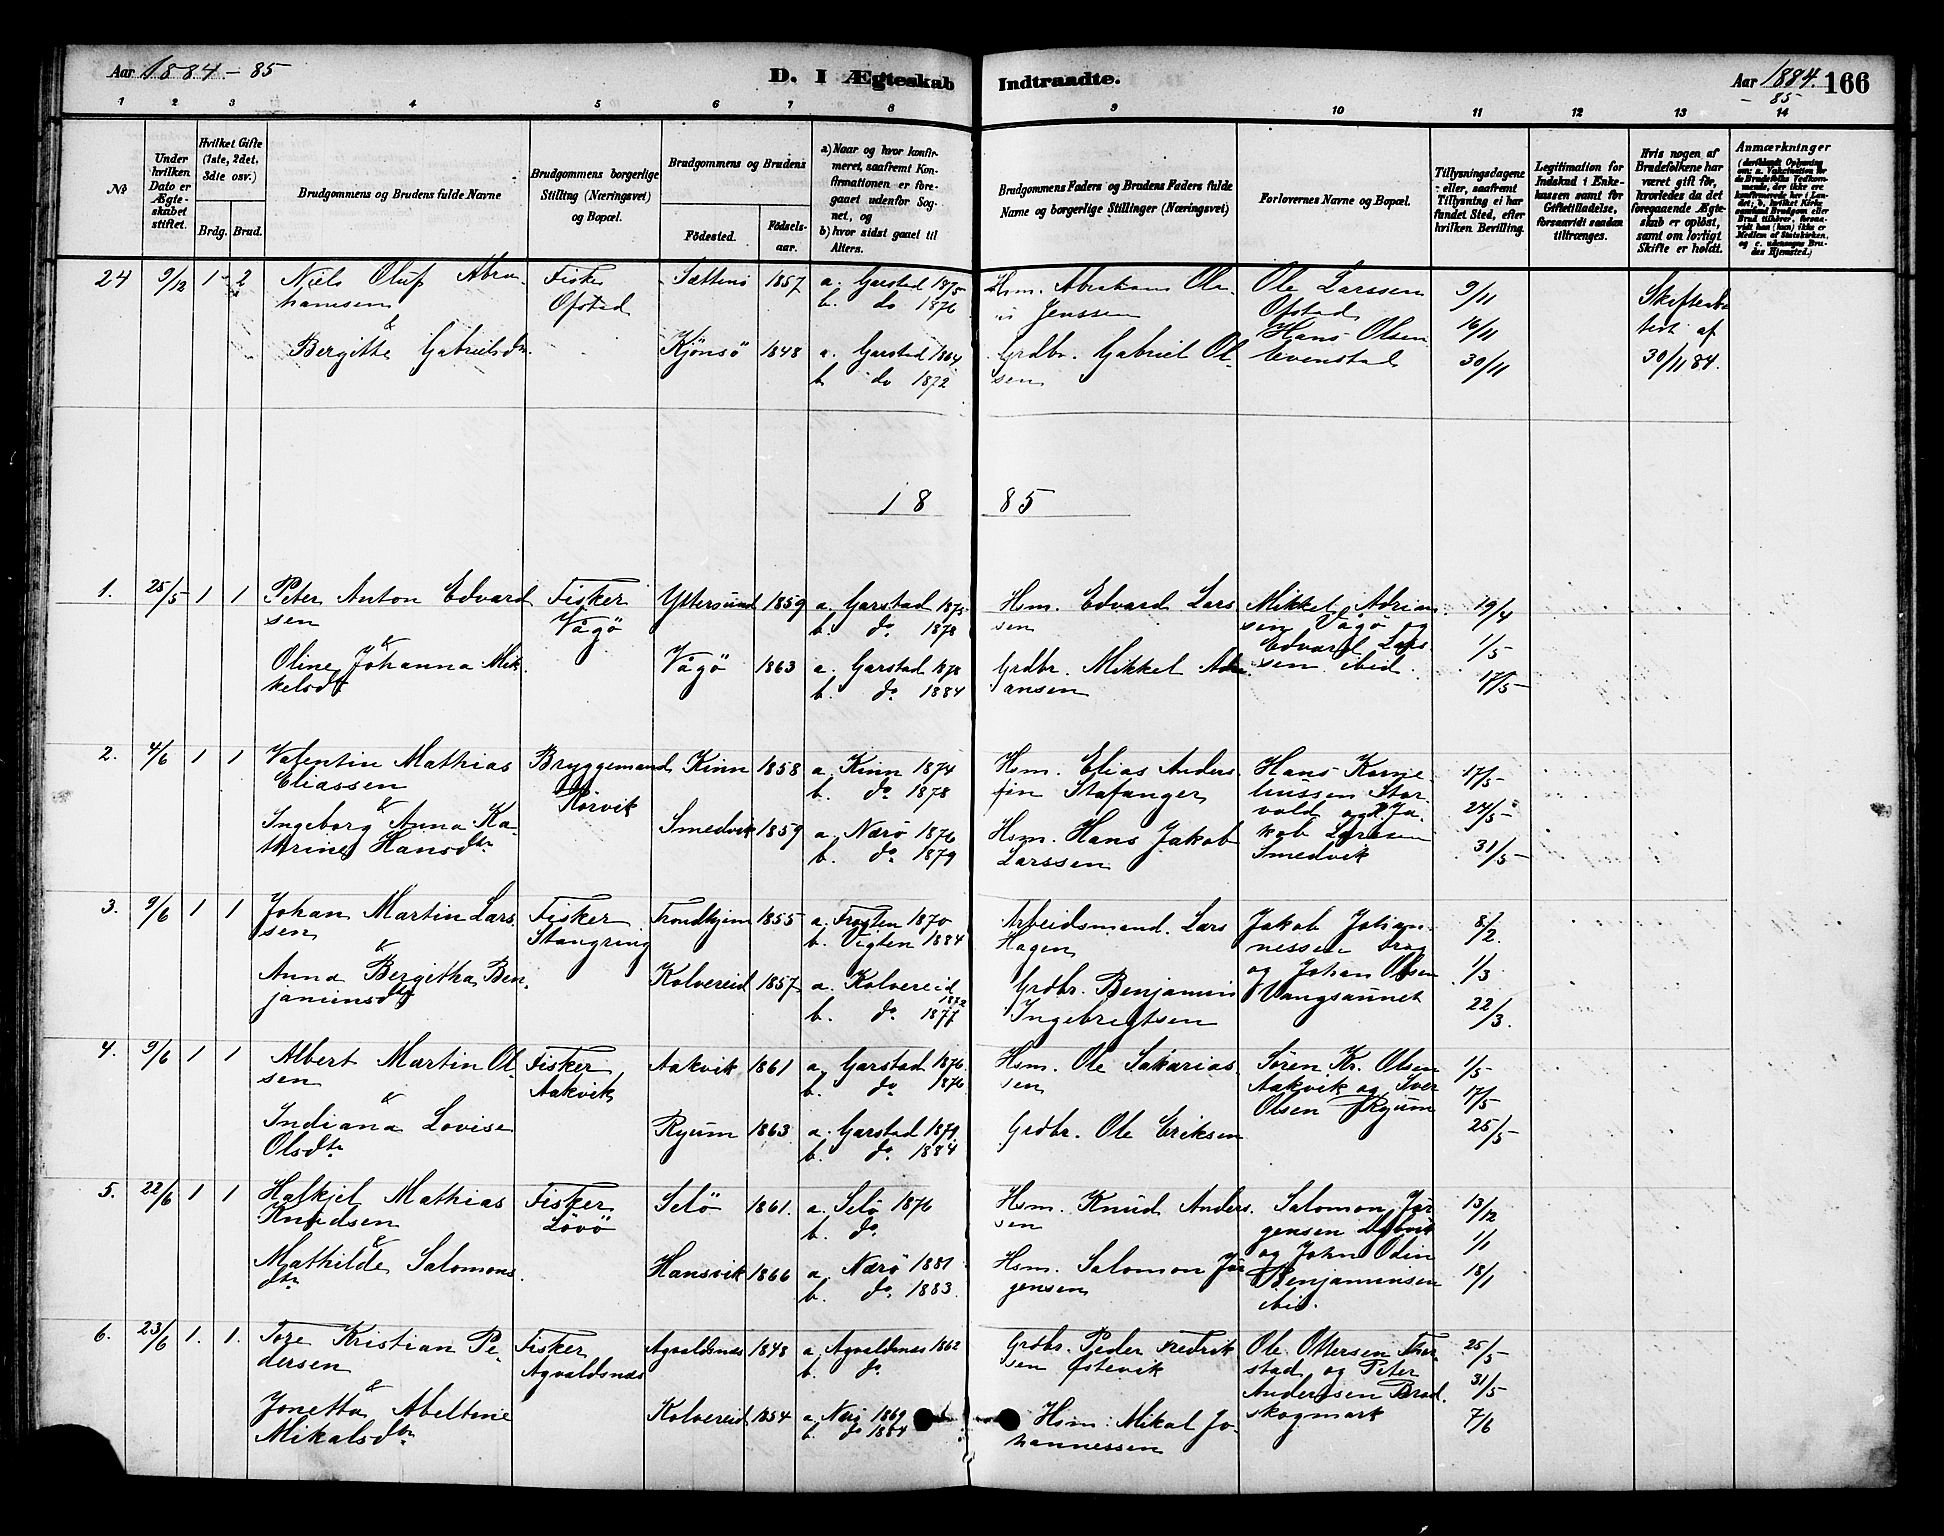 Aar 1884-85
D. I Ægteskab Indtraadte.
Aar 1884. 166
-85
1 2 3 4 5 6 7 8 9 10 11 12 13 14
No
Under hvilken Dato er Ægteskabet stiftet.
Hvilket Gifte (1ste, 2det, 3die osv.)
Brdg. Brud.
Brudgommens og Brudens fulde Navne
Brudgommens borgerlige Stilling (Næringsvei) og Bopæl.
Brudgommens og Brudens
Födested.
Födselsaar.
a) Naar og hvor konfirmeret, saafremt Konfirmationen er foregaaet udenfor Sognet, og
b) hvor sidst gaaet til Alters.
Brudgommens Faders og Brudens Faders fulde Navne og borgerlige Stillinger (Næringsvei)
Forlovernes Navne og Bopæl.
Tillysningsdagene eller, saafremt Tillysning ei har fundet Sted, efter hvilken Bevilling.
Legitimation for Indskud i Enkekassen samt for Giftetilladelse, forsaavidt saadan tiltrænges.
Hvis nogen af Brudefolkene har været gift för, hvorledes da det foregaaende Ægteskab er oplöst, samt om lovligt Skifte er holdt.
Anmærkninger
24 9/12 1 2
Niels Oluf Abra
hamsen
&
Bergitte Gabrielsdtr.
Fisker
Ofstad
1857
Kjönsö 1848
a. Garstad 1875
b. do 1876
a. Garstad 1864
b. do 1872
Hsm. Abraham Ole
Jenssen
Grdbr. Gabriel Ol
sen
Ole Larssen
Ofstad
Hans Olsen
Evenstad
9/11
16/11
30/11
Skifteat
test af
30/11 84.
18 85
1. 25/5 1 1
Peter Anton Edvard
sen
&
Oline Johanna Mik
kelsdtr
Fisker
Vågö
Yttersund 1859
Vågö 1863
a. Garstad 1875
b. do 1878
a. Garstad 1878
b. do 1884
Hsm. Edvard Lars
sen
Grdbr. Mikkel Adri
ansen
Mikkel Adrian
sen Vågö og
Edvard Lars
sen ibid.
19/4
1/5
17/5
2. 4/6 1 1
Valentin Mathias
Eliassen
&
Ingeborg Anna Ka
thrine Hansdtr
Bryggemand
Rörvik
Kinn 1858
Smedvik 1859
a. Kinn 1874
b. do 1878
a. Nærö 1876
b. do 1879
Hsm. Elias Anders
sen Stafanger
Hsm. Hans Jakob
Larssen
Hans Korne
liussen Stor
vold og H. Ja
kob Larssen
Smedvik
17/5
24/5
31/5
3. 9/6 1 1
Johan Martin Lars
sen
&
Anna Bergitha Ben
jaminsdtr
Fisker
Stangring
Trondhjem 1855
Kolvereid 1857
a. Frøyten 1870
b. Vigten 1884
a. Kolvereid
1872
b. do 1877
Arbeidsmand. Lars
Hagen
Grdbr. Benjamin
Ingebrigtsen
Jakob Johan
nessen Drag
og Johan Olsen
Vangsaunet
8/2.
1/3
22/3.
4. 9/6 1 1
Albert Martin Ol
sen
&
Indiana Lovise
Olsdtr
Fisker
Aakvik
Aakvik 1861
Ryum 1863
a. Garstad 1876
b. do 1876
a. Garstad 1879
b. do 1884
Hsm. Ole Sakarias
sen
Grdbr. Ole Eriksen
Sören Kr. Olsen
Aakvik og Iver
Olsen Ryum
1/5
17/5
25/5
5. 22/6 1 1
Halkjel Mathias
Knudsen
&
Mathilde Salomons
dtr
Fisker
Lövö
Selö 1861.
Hansvik 1866
a. Selö 1876
b. do
a. Nærö 1881
b. do. 1883.
Hsm. Knud Anders
sen
Hsm. Salomon Jör
gensen
Salomon Jör
gensen
og John Odin
Benjaminsen
ibid.
13/12
1/1
18/1
6. 23/6 1. 1.
Tore Kristian Pe
dersen
&
Jonetta Abeltine
Mikalsdtr
Fisker
Agvaldsnæs
Agvaldsnæs 1848
Kolvereid 1854
a. Agvaldsnæs 1862
b. do
a. Nærö 1869
b. do 1884
Grdbr. Peder Fredrik
sen Østevik
Hsm. Mikal Jo
hannessen
Ole Ottersen Thor
stad og Peter
Anderssen Brad
skogmark
25/5
31/5
7/6